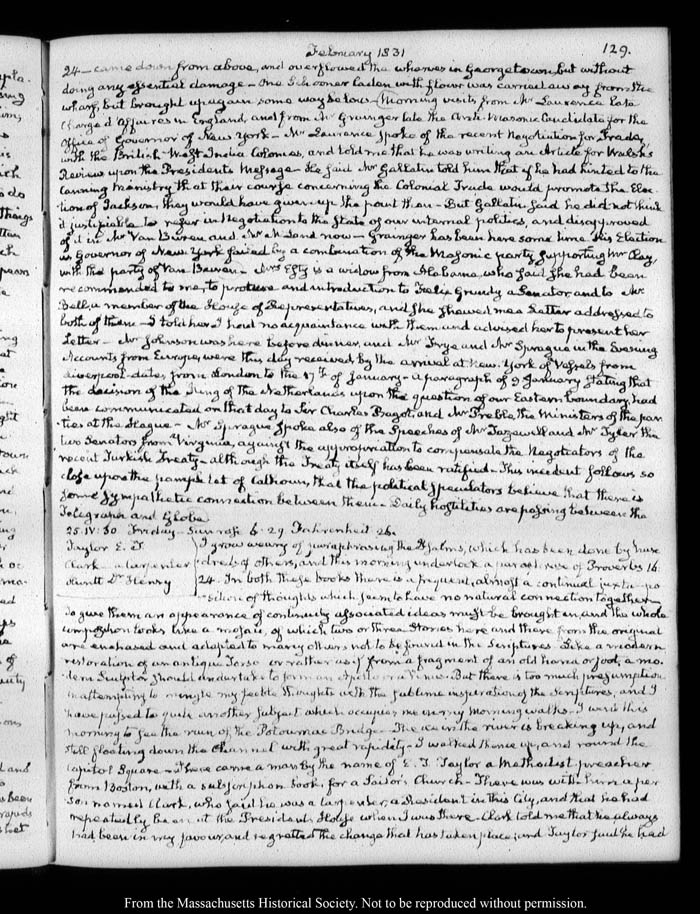 February 1831
129.
24 — came down from above, and overflowed the wharves in Georgetown, but without
doing any essential damage — One Schooner laden with flour was carried away from the
wharf, but brought up again some way below — Morning visits from Mr Lawrence late
Chargé d'Affaires in England, and from Mr Granger late the Anti-Masonic Candidate for the
Office of Governor of New York — Mr Lawrence spoke of the recent Negotiation for Trade,
with the British West India Colonies, and told me that he was writing an Article for Walsh's
Review upon the President's Message — He said Mr Gallatin told him that if he had hinted to the
Canning Ministry that their course concerning the Colonial Trade would promote the Elec
tion of Jackson, they would have given up the point then — But Gallatin said he did not think
it justifiable to refer in Negotiation to the State of our internal politics, and disapproved
of it in Mr Van Buren and Mr McLane now — Granger has been here some time. His Election
as Governor of New York failed by a combination of the Masonic party supporting Mr Clay,
with the party of Van Buren — Mrs is a widow from Alabama, who said she had been
recommended to me, to procure and introduction to Felix Grundy a Senator, and to Mr
Bell, a member of the House of Representatives, and she showed me a Letter addressed to
both of them — I told her I had no acquaintance with them and advised her to present her
Letter — Mr Johnson was here before dinner, and Mr Frye and Mr Sprague in the Evening
Accounts from Europe, were this day received by the arrival at New-York of Vessels from
Liverpool — dates from London to the 17th of January — a paragraph of 9 January, stating that
the decision of the King of the Netherlands upon the question of our Eastern boundary, had
been communicated on that day to Sir Charles Bagot, and Mr Preble the Ministers of the par
ties at the Hague — Mr Sprague spoke also of the Speeches of Mr Tazewell and Mr Tyler the
two Senators from Virginia, against the appropriation to compensate the Negotiators of the
recent Turkish Treaty — although the Treaty itself has been ratified — This incident follows so
close upon the pamphlet of Calhoun, that the political speculators believe that there is
some sympathetic connection between them — Daily hostilities are passing between the
Telegraph and Globe
25. IV:30 Friday — Sun rose 6. 29 Fahrenheit 26.
Taylor E. T
Clark — a carpenter
Huntt Dr Henry
I grow weary of paraphrasing the Psalms, which has been done by hun
dreds of others, and this morning undertook a paraphrase of Proverbs 16:
24. In both these books there is a frequent, almost a continual juxtapo
sition of thoughts which seem to have no natural connection together —
To give them an appearance of continuity associated ideas must be brought in, and the whole
composition looks like a mosaic, of which two or three stones here and there from the original
are enchased and adapted to many others not to be found in the Scriptures. Like a modern
restoration of an antique Torso or rather as if from a fragment of an old hand or foot, a mo
dern Sculptor should undertake to form an Apollo or a Venus. But there is too much presumption
in attempting to mingle my feeble thoughts with the sublime inspiration of the Scriptures, and I
have passed to quite another subject which occupies me in my morning walks — I went this
morning to see the ruin of the Potowmac Bridge — The ice in the river is breaking up, and
still floating down the Channel with great rapidity — I walked thence up, and round the
Capitol Square — There came a man by the name of E. T. Taylor a Methodist preacher
from Boston, with a subscription book, for a Sailor's Church — There was with him a per
son named Clark, who said he was a carpenter, a resident in this City, and that he had
repeatedly been at the President's House when I was there. Clark told me that he always
had been in my favour, and regretted the change that has taken place; and Taylor said he had
From the Massachusetts Historical Society. Not to be reproduced without permission.